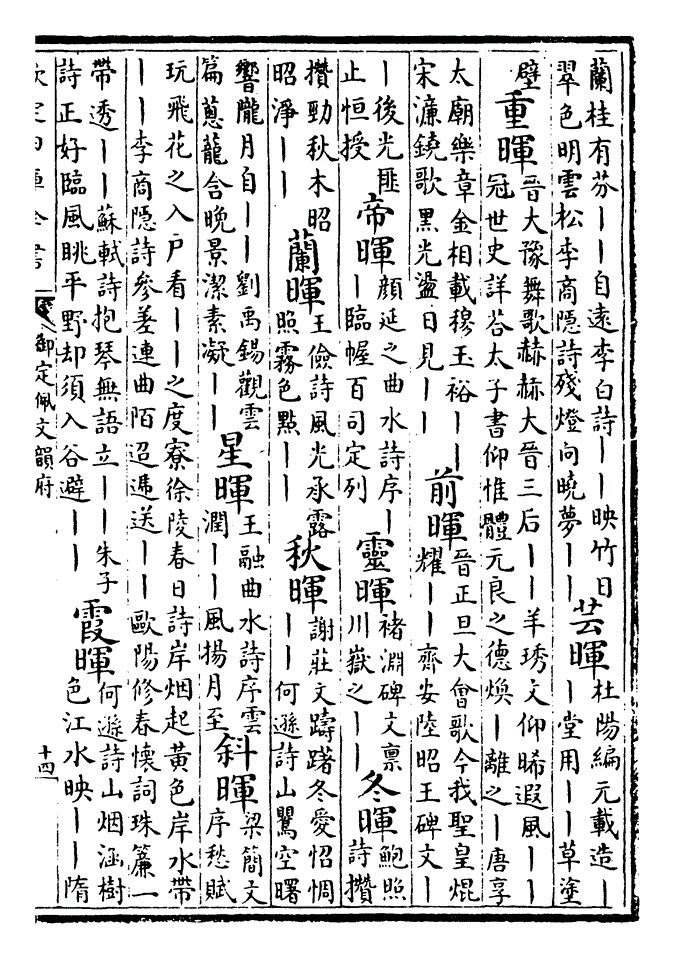 蘭桂有芬丨丨自遠李白詩丨丨映竹日
翠色明雲松李商隱詩殘燈向曉夢丨丨
芸暉
杜陽編元載造丨
丨堂用丨丨草塗
壁
重暉
晉大豫舞歌赫赫大晉三后丨丨羊琇文仰晞遐風丨丨
冠世史詳荅太子書仰惟體元良之德煥丨離之丨唐享
太廟樂章金相載穆玉裕丨丨
宋濓鐃歌黑光盪日見丨丨
前暉
晉正旦大會歌今我聖皇焜
耀丨丨齊安陸昭王碑文丨
丨後光匪
止恒授
帝暉
顔延之曲水詩序丨
丨臨幄百司定列
靈暉
褚淵碑文禀
川嶽之丨丨
冬暉
鮑照
詩攢
攢勁秋木昭
昭淨丨丨
蘭暉
王儉詩風光承露
照霧色㸃丨丨
秋暉
謝莊文躊躇冬愛怊惆
丨丨何遜詩山鸎空曙
響隴月自丨丨劉禹錫觀雲
篇蔥蘢含晚景潔素凝丨丨
星暉
王融曲水詩序雲
潤丨丨風揚月至
斜暉
梁簡文
序愁賦
玩飛花之入户看丨丨之度寮徐陵春日詩岸烟起黄色岸水帶
丨丨李商隱詩參差連曲陌迢遞送丨丨歐陽修春懷詞珠簾一
帶透丨丨蘇軾詩抱琴無語立丨丨朱子
詩正好臨風眺平野却須入谷避丨丨
霞暉
何遜詩山烟涵樹
色江水映丨丨隋
欽定四庫全書
御定佩文韻府
十四